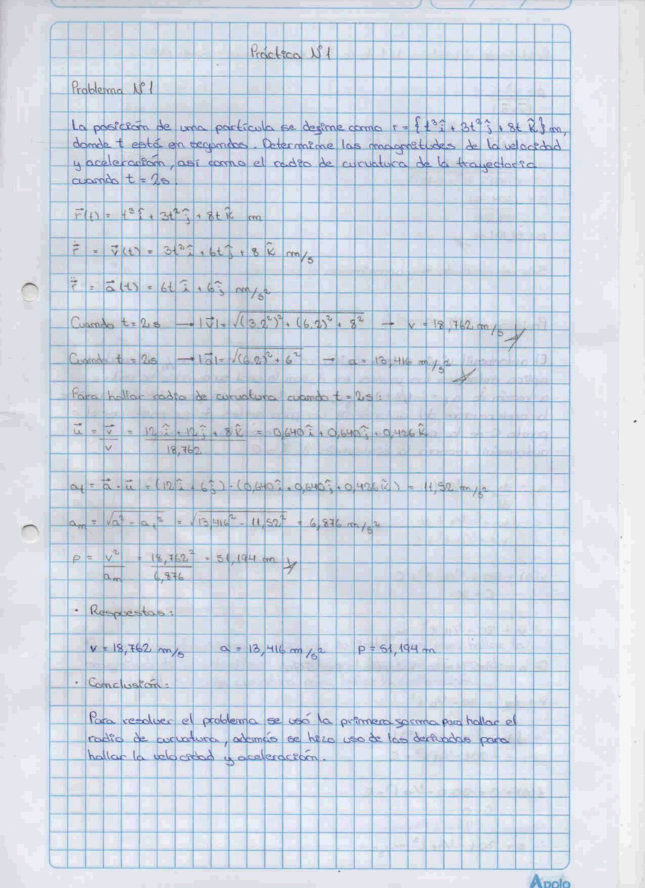 Práctica Nº1
Problema Nº1
La posición de una partícula se define como r = {t³î + 3t²ĵ + 8t k̂} m,
donde t está en segundos. Determine las magnitudes de la velocidad
y aceleración, así como el radio de curvatura de la trayectoria
cuando t = 2s.
r⃗(t) = t³î + 3t²ĵ + 8t k̂ m
ṙ⃗ = v⃗(t) = 3t²î + 6tĵ + 8 k̂ m/s
r̈⃗ = a⃗(t) = 6t î + 6ĵ m/s²
Cuando t = 2s → |v⃗| = √((3.2²)² + (6.2)² + 8²) → v = 18,762 m/s
Cuando t = 2s → |a⃗| = √((6.2)² + 6²) → a = 13,416 m/s²
Para hallar radio de curvatura cuando t = 2s:
u⃗ = v⃗/v = (12î + 12ĵ + 8k̂)/18,762 = 0,640î + 0,640ĵ + 0,426k̂
at = a⃗ · u⃗ = (12î + 6ĵ) · (0,640î + 0,640ĵ + 0,426k̂) = 11,52 m/s²
an = √(a² - at²) = √(13,416² - 11,52²) = 6,876 m/s²
ρ = v²/an = 18,762²/6,876 = 51,194 m
· Respuestas:
v = 18,762 m/s a = 13,416 m/s² ρ = 51,194 m
· Conclusión:
Para resolver el problema se usó la primera forma para hallar el
radio de curvatura, además se hizo uso de las derivadas para
hallar la velocidad y aceleración.
Apolo